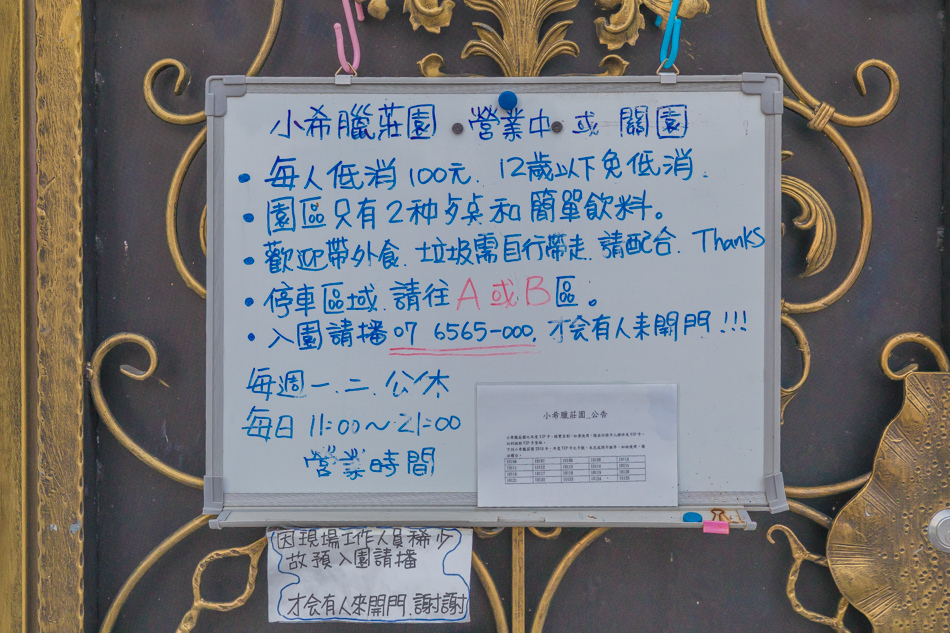 小希臘莊園 營業中 或 關園
• 每人低消100元. 12歲以下免低消.
• 園區只有2种多桌和簡單飲料。
• 歡迎帶外食. 垃圾需自行帶走. 請配合. Thanks
• 停車區域. 請往A或B區。
• 入園請播07 6565-000. 才会有人来開門!!!
每週一.二.公休
每日 11:00～21:00
營業時間
小希臘莊園_公告
因現場工作人員稀少
故預入園請播
才会有人來開門.謝謝